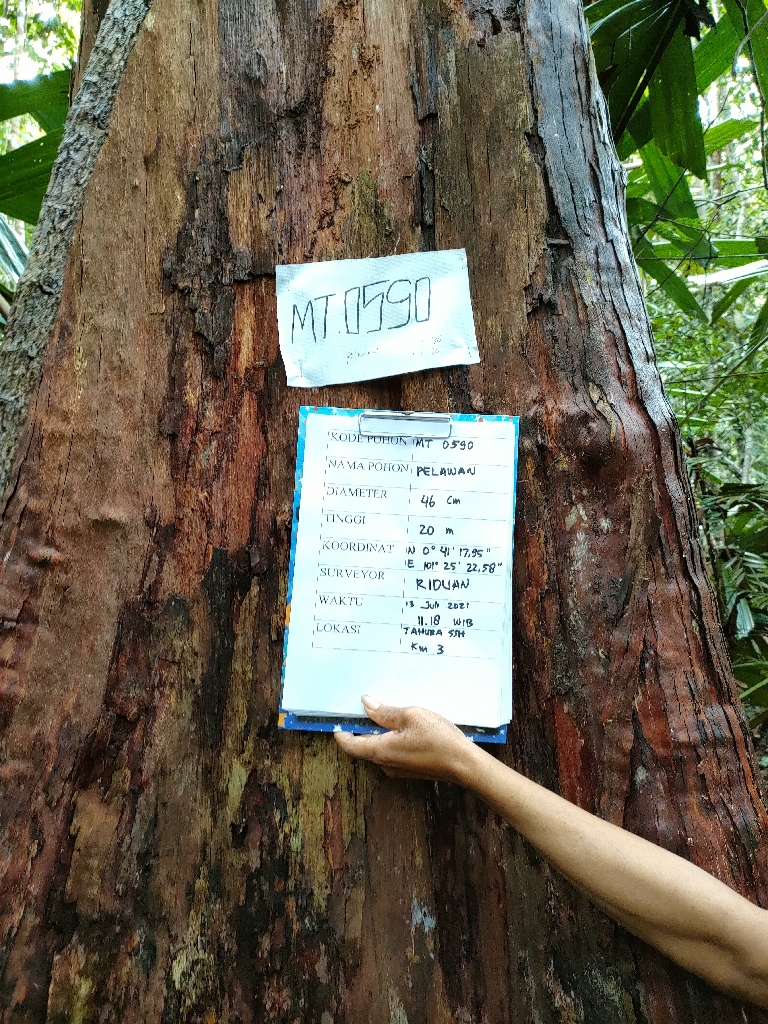 MT.0590
KODE POHON MT 0590
NAMA POHON PELAWAN
DIAMETER 46 cm
TINGGI 20 m
KOORDINAT N 0° 41' 17,95"
E 101° 25' 22,58"
SURVEYOR RIDUAN
WAKTU 13 Juli 2021
11.18 WIB
LOKASI TAHURA SSH
Km 3